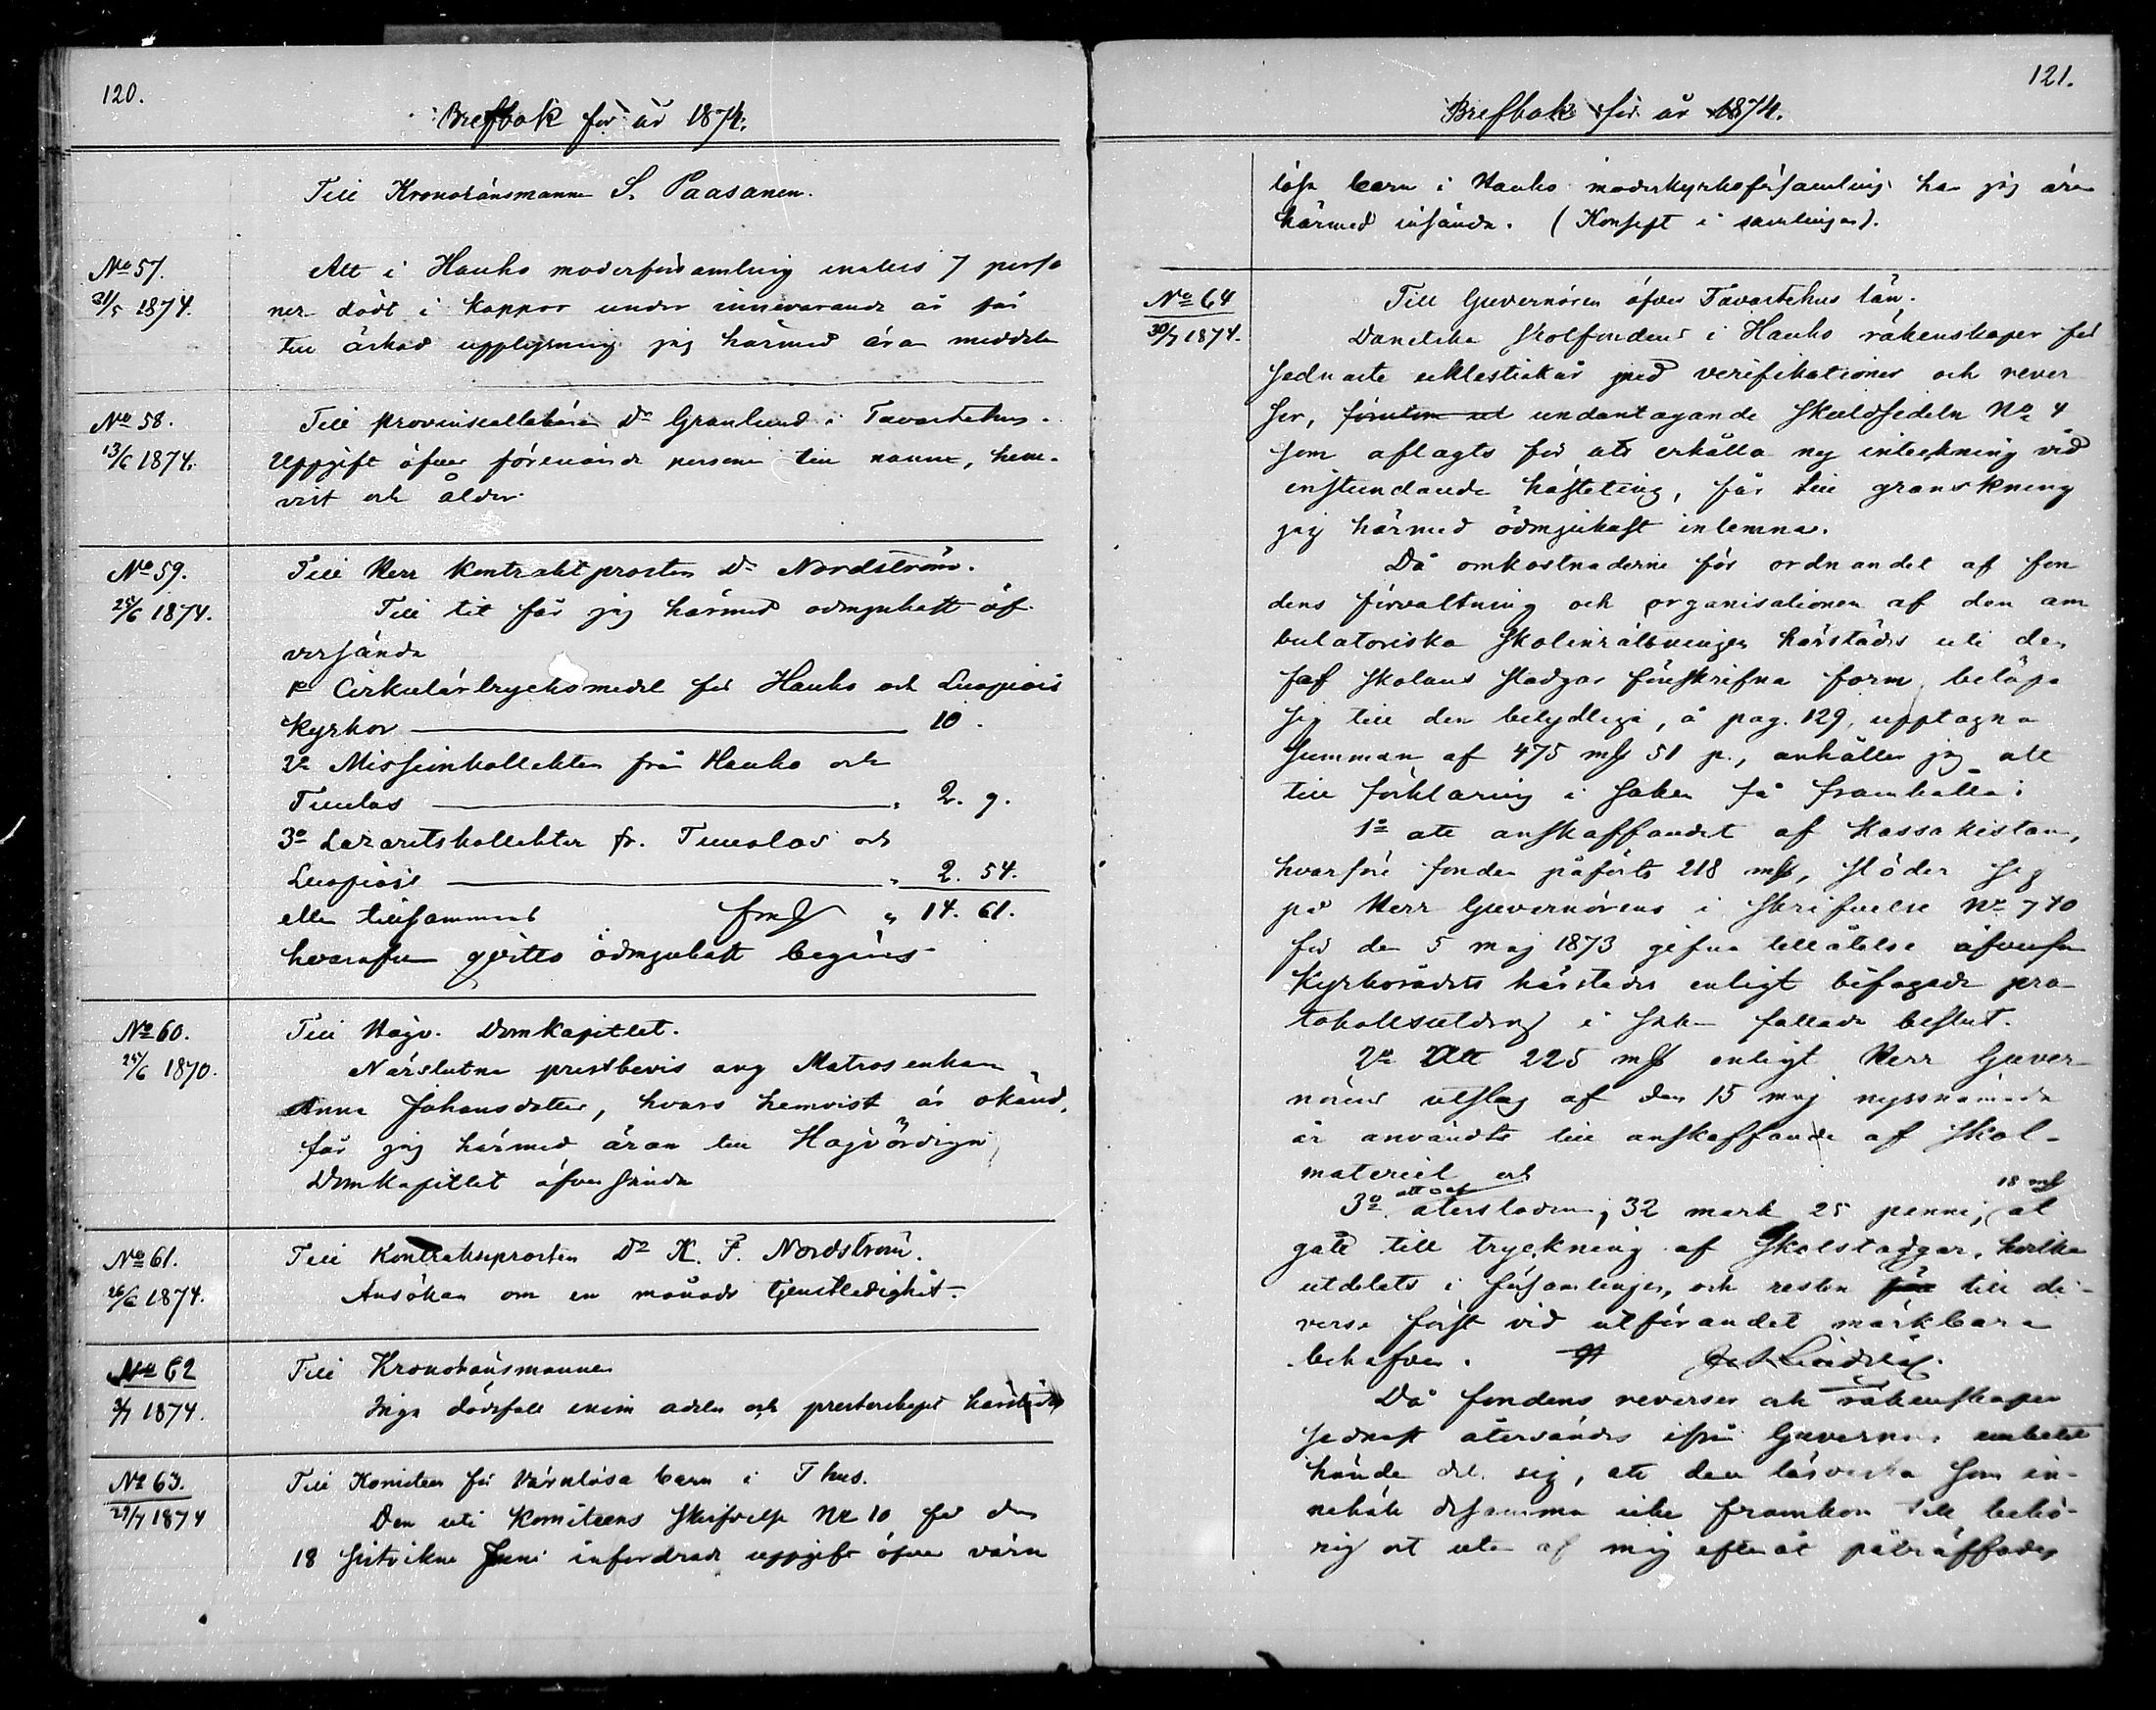 120.
Brefbok för år 1874.
Till Kronolänsmannen S. Paasanen.
No 57.
31/5 1874.
Att i Hauho moderförsamling enalles 7 perso
ner dödt i koppor under innevarande år får
till äskad upplysning jag härmed äran meddela
No 58.
13/6 1874.
Till provincialläkaren Dr Granlund i Tavastehus.
Uppgift öfver förenämnde personer till namn, hem-
vist och ålder.
No 59.
25/6 1874.
Till Herr Kontraktsprosten Dr Nordström.
Till tit får jag härmed ödmjukast öf
versända
1o Cirkulärtrycksmedel för Hauho och Luopiois
kyrkor 10.
2o Missionkollekten från Hauho och
Tuulos " 2. 7.
3o Lazaretskollekten fr. Tuulos och
Luopiois " 2. 54.
eller tillsammans Fmk " 14. 61.
hvaröfver qvitto ödmjukast begäres
No 60.
25/6 1870.
Till Högv. Domkapitlet.
Närslutna prestbevis ang Matrosenkan
Anna Johansdotter, hvars hemvist är okänd,
får jag härmed äran till Högvördiga
Domkapitlet öfversända
No 61.
26/6 1874.
Till Kontraktsprosten Dr K. F. Nordström.
Ansökan om en månads tjenstledighet.
No 62
3/7 1874.
Till Kronolänsmannen
Inga dödsfall inom adeln och presterskapet härstädes
No 63.
29/7 1874
Till Komiteen för Värnlösa barn i T hus.
Den uti Komiteens skrifvelse No 10 för den
18 sistvikne Juni infordrade uppgift öfver värn
121.
Brefbok för år 1874.
lösa barn i Hauho moderkyrkoförsamling har jag äran
härmed insända. (Konsept i samlingar).
No 64
30/7 1874.
Till Guvernören öfver Tavastehus län.
Danelska Skolfondens i Hauho räkenskaper för
sednaste eklestiakår med verifikationer och rever
ser, förutom ad undantagande skuldsedeln No 4
som aflagts för att erhålla ny inteckning vid
instundande hösteting, får till granskning
jag härmed ödmjukast inlemna.
Då omkostnaderne för ordnandet af fon
dens förvaltning och organisationen af den am
bulatoriska skolinrättningen härstädes uti den
af skolans stadgar föreskrifna form belöpa
sig till den betydliga, å pag. 129, upptagna
summan af 475 mk 51 p., anhåller jag att
till förklaring i saken få framhålla:
1o att anskaffandet af Kassakistan,
hvarföre fonden påförts 218 mk, stöder sig
på Herr Guvernörens i skrifvelse No 740
för den 5 maj 1873 gifna tillåtelse äfvensom
Kyrkorådets härstädes enligt bifogade pro
tokollsutdrag i saken fattade beslut.
2o Att 225 mk enligt Herr Guver-
nörens utslag af den 15 maj nyssnämnde
år användts till anskaffande af skol-
materiel och
3o att af återstoden, 32 mark 25 penni, 18 mk åt
gått till tryckning af Skolstadgar, hvilka
utdelats i församlingen, och resten för till di-
verse först vid utförandet märkbara
behofven.
Då fondens reverser och räkenskaper
sednast återsändes ifrån Guvernörs embetet
hände det sig, att den låsväska som in-
nehöll desamma icke framkom till behö-
rig ort utan af mig efteråt påträffades